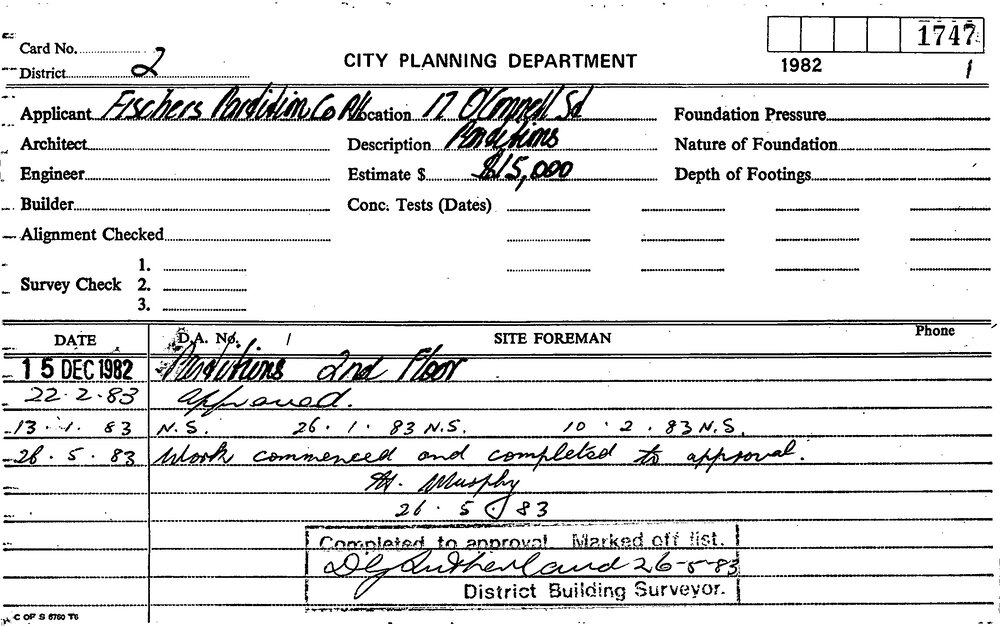 1747
Card No.
CITY PLANNING DEPARTMENT
District 2
1982 1
Applicant Fischers Partition Co P/L Location 17 O'Connell St Foundation Pressure
Architect Description Partitions Nature of Foundation
Engineer Estimate $ $15,000 Depth of Footings
Builder Conc. Tests (Dates)
Alignment Checked
1.
Survey Check 2.
3.
DATE D.A. No. / SITE FOREMAN Phone
15 DEC 1982 Partitions 2nd Floor
22.2.83 approved.
13.1.83 N.S. 26.1.83 N.S. 10.2.83 N.S.
26.5.83 Work commenced and completed to approval.
M. Murphy
26.5.83
Completed to approval Marked off list.
DG Sutherland 26-5-83
District Building Surveyor.
C OF S 6760 T6